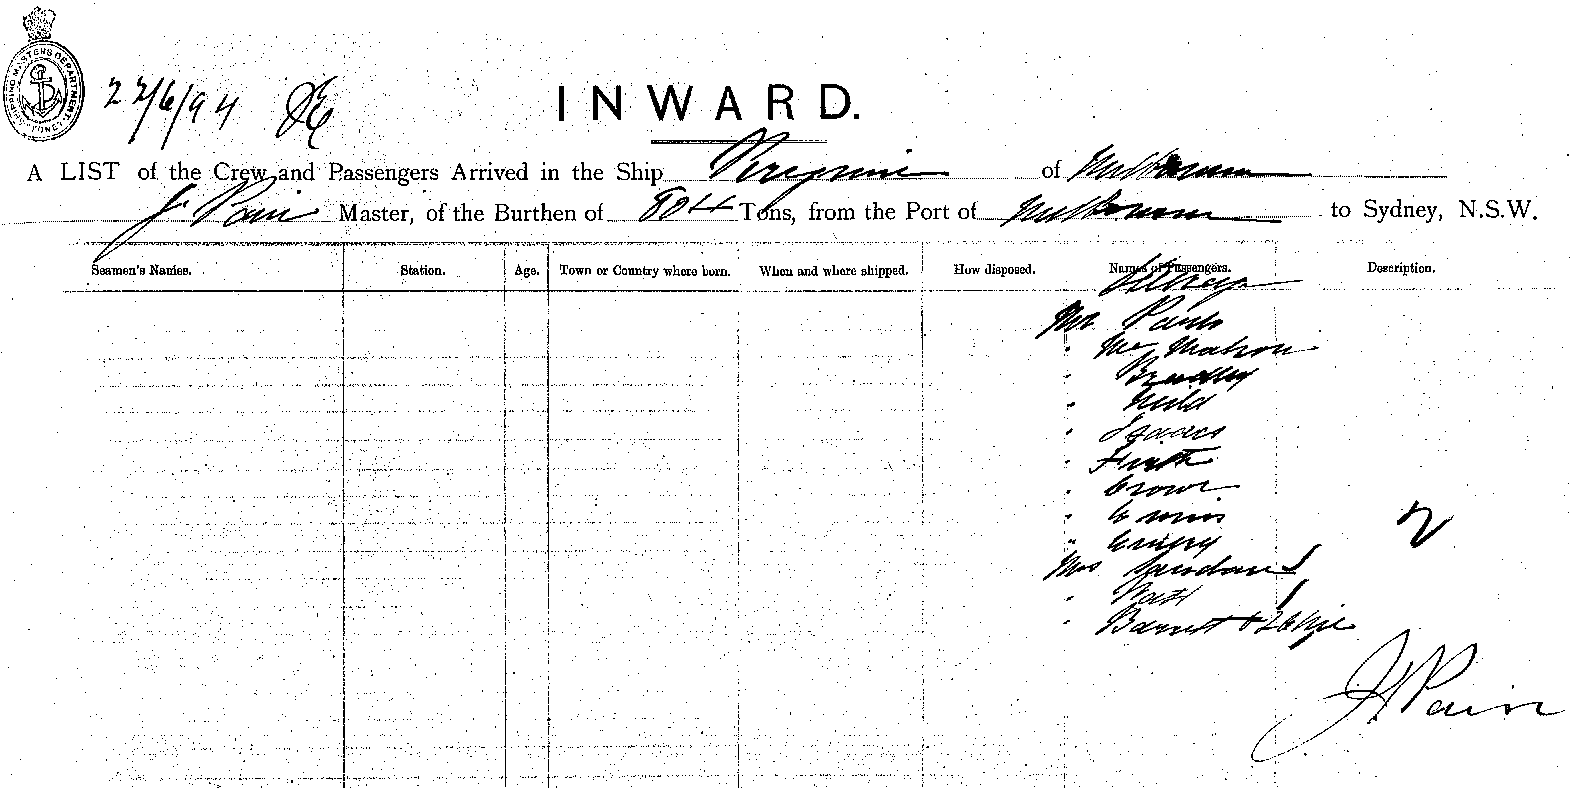 SHIPPING MASTERS DEPARTMENT
22/6/94
INWARD.
A LIST of the Crew and Passengers Arrived in the Ship of Melbourne
J. Pain Master, of the Burthen of 804 Tons, from the Port of Melbourne to Sydney, N.S.W.
Seamen's Names. Station. Age. Town or Country where born. When and where shipped. How disposed. Names of Passengers. Description.
Mr
" McMahon
" Bradley
" Neild
" Isaacs
" Firth
" Crowe
"
"
Mrs
"
" Barrett + 2
2
J Pain